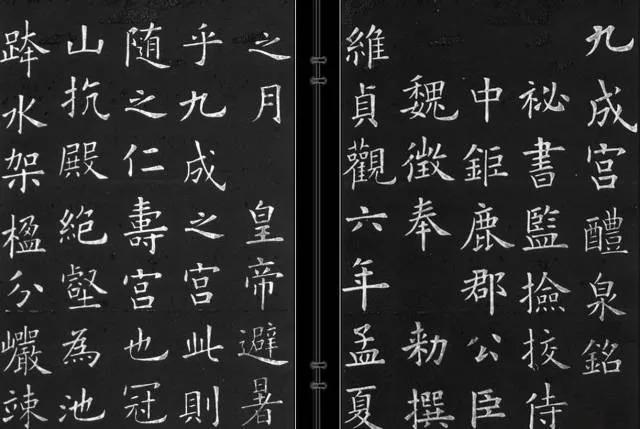 九成宮醴泉銘
祕書監撿挍侍
中鉅鹿郡公臣
魏徵奉勑撰
維貞觀六年孟夏
之月皇帝避暑
乎九成之宮此則
随之仁壽宮也冠
山抗殿絕壑為池
跨水架楹分巖竦